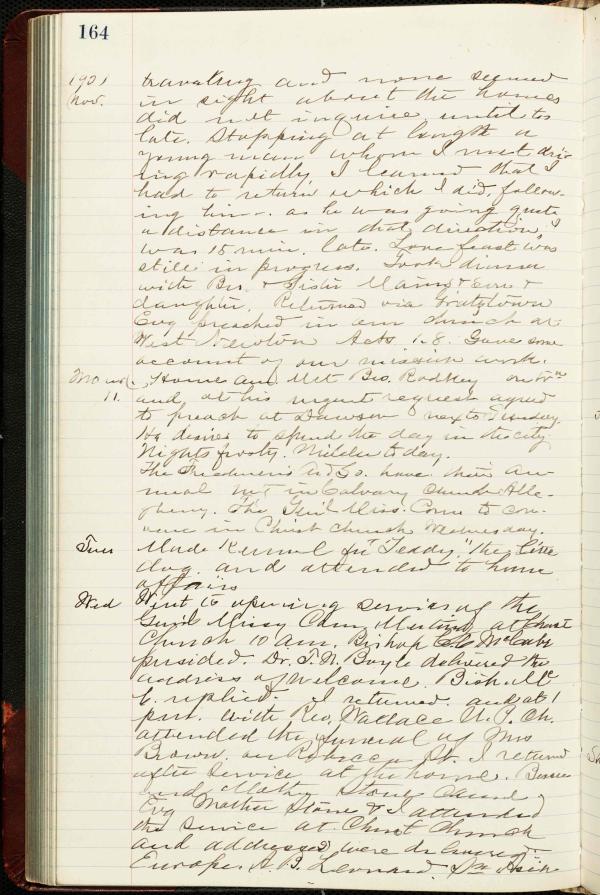 164
1901 traveling and none seemed
Nov. in sight about the homes
did not inquire until too
late. Stopping at length a
young man whom I met driv-
ing rapidly, I learned that I
had to return which I did, follow-
ing him. as he was going quite
a distance in that direction, I
was 15 min. late. Love feast was
still in progress. Took dinner
with Bro. & Sister &
daughter. Returned via
Evg preached in our church at
West Newton Acts. 1-8. Gave some
account of our mission work.
Mond. Home and Met Bro. Rodkey on
11. and at his urgent request agreed
to preach at Dawson next Sunday.
He desires to spend the day in the city.
Nights frosty. Milder today.
The Freedmen's Aid So. have their an-
nual met in Calvary Church Alle-
gheny. The Genl Miss. Com to con-
vene in Christ Church Wednesday.
Tues Made Kennel for "Teddy." the little
dog. and attended to home
affairs
Wed Went to opening service of the
Genl Missy Com Meeting at Christ
Church 10 am. Bishop McCabe
presided. Dr. T. N. Boyle delivered the
address of welcome. Bish. Mc
C. replied. I returned. and at 1
p.m. with Rev. Wallace U. P. Ch.
attended the funeral of Mrs
Brown. on Rebecca St. I returned
after service at the home.
and Mother Stone
Evg Mother Stone & I attended
the service at Christ Church
and addresses were delivered
Europe. A. B. Leonard.